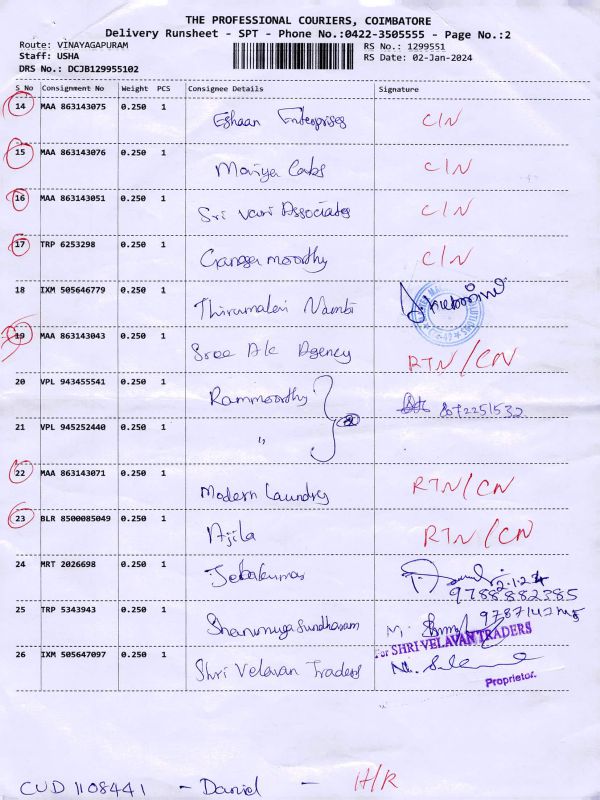 THE PROFESSIONAL COURIERS, COIMBATORE
Delivery Runsheet - SPT - Phone No.:0422-3505555 - Page No.:2
Route: VINAYAGAPURAM
Staff: USHA
DRS No.: DCJB129955102
RS No.: 1299551
RS Date: 02-Jan-2024
S_No Consignment No Weight PCS Consignee Details Signature
14 MAA 863143075 0.250 1 Eshaan Enterprises C/N
15 MAA 863143076 0.250 1 Mariya Cabs C/N
16 MAA 863143051 0.250 1 Sri Vari Associates C/N
17 TRP 6253298 0.250 1 Ganga moorthy C/N
18 IXM 505646779 0.250 1 Thirumalai Nambi
19 MAA 863143043 0.250 1 Sree Ak Agency RTN/CN
20 VPL 943455541 0.250 1 Rammoorthy 8072251532
21 VPL 945252440 0.250 1 "
22 MAA 863143071 0.250 1 Modern Laundry RTN/CN
23 BLR 8500085049 0.250 1 Ajila RTN/CN
24 MRT 2026698 0.250 1 Jebakumar 2.1.24
9788882385
25 TRP 5343943 0.250 1 Shanmuga Sundharam
For SHRI VELAVAN TRADERS
26 IXM 505647097 0.250 1 Shri Velavan Traders
Proprietor.
CUD 1108441 - Daniel - H/R